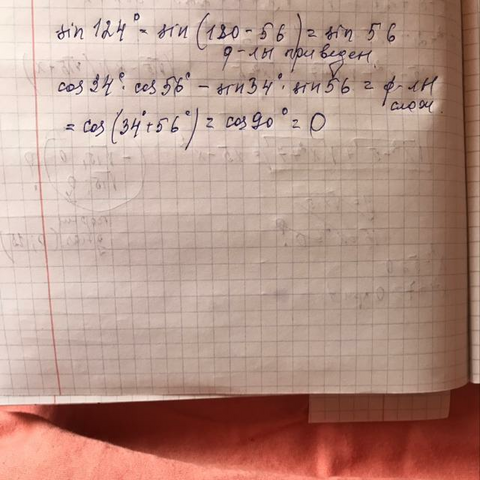 sin 124° = sin (180 - 56) = sin 56
ф-лы приведен.
cos 34° · cos 56° - sin 34° · sin 56 = ф-лы
слож.
= cos (34° + 56°) = cos 90° = 0